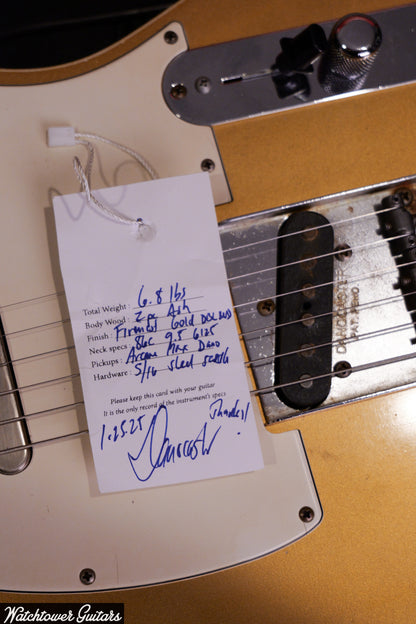 Total Weight: 6.8 lbs
Body Wood: 2pc Ash
Finish: Firemist Gold DBL BND
Neck specs: 86C 9.5 6125
Pickups: Arcane
Hardware: 5/16 steel
Please keep this card with your guitar
It is the only record of the instrument's specs
1.25.25
Thanks!!
Watchtower Guitars